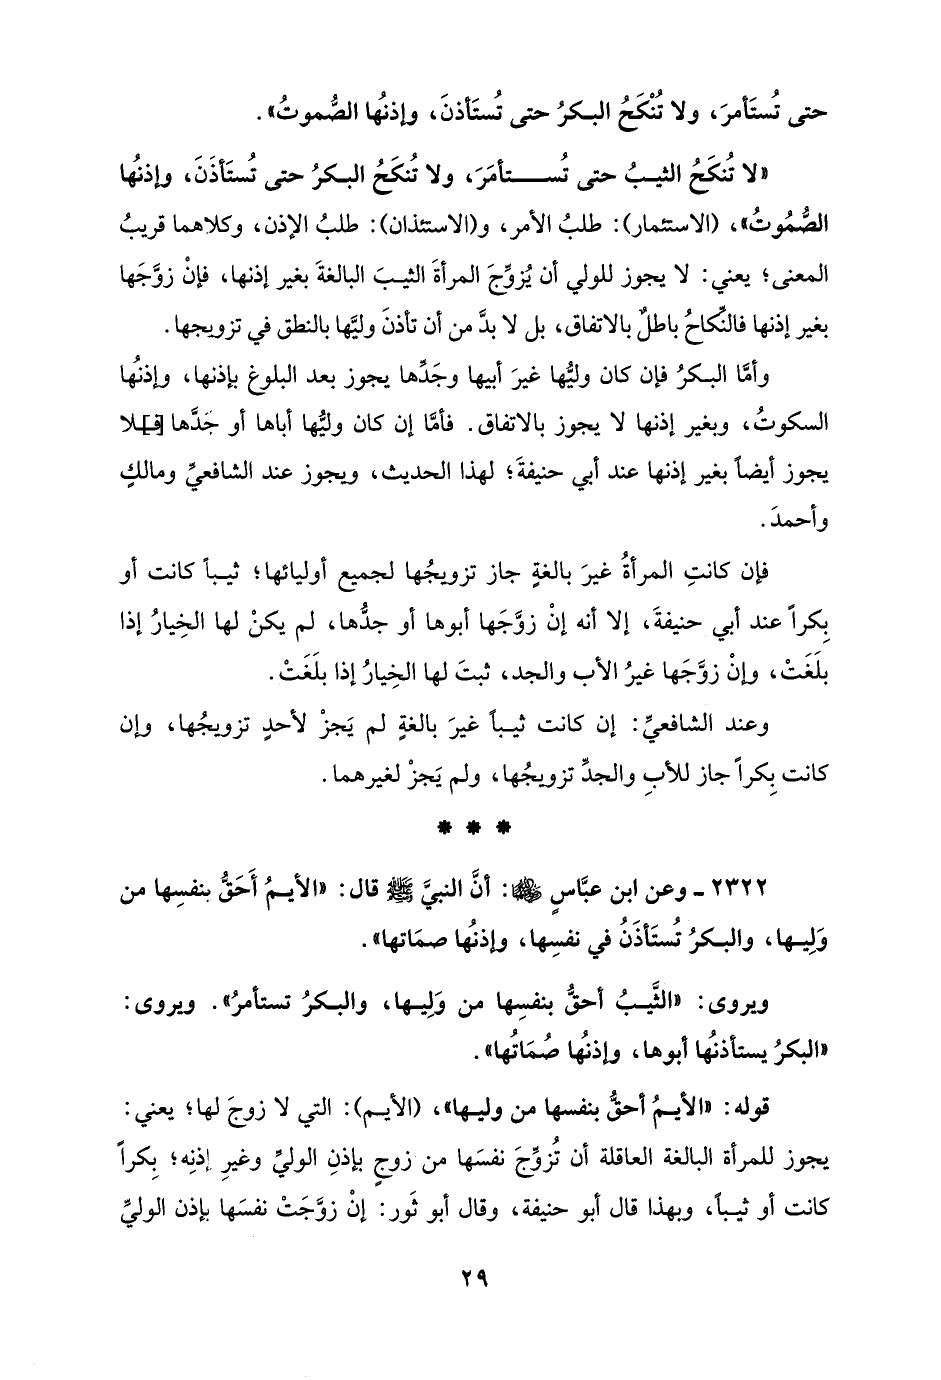 حتى تُستَأمرَ، ولا تُنْكَحُ البكرُ حتى تُستَأذنَ، وإذنُها الصُّموتُ».
«لا تُنكَحُ الثيبُ حتى تُستأمَرَ، ولا تُنكَحُ البكرُ حتى تُستَأذَنَ، وإذنُها
الصُّمُوتُ»، (الاستئمار): طلبُ الأمر، و(الاستئذان): طلبُ الإذن، وكلاهما قريبُ
المعنى؛ يعني: لا يجوز للولي أن يُزوِّجَ المرأةَ الثيبَ البالغةَ بغير إذنها، فإنْ زوَّجَها
بغير إذنها فالنِّكاحُ باطلٌ بالاتفاق، بل لا بدَّ من أن تأذنَ وليَّها بالنطق في تزويجها.
وأمَّا البكرُ فإن كان وليُّها غيرَ أبيها وجَدِّها يجوز بعد البلوغ بإذنها، وإذنُها
السكوتُ، وبغير إذنها لا يجوز بالاتفاق. فأمَّا إن كان وليُّها أباها أو جَدَّها [فـ]ـلا
يجوز أيضاً بغير إذنها عند أبي حنيفةَ؛ لهذا الحديث، ويجوز عند الشافعيِّ ومالكٍ
وأحمدَ.
فإن كانتِ المرأةُ غيرَ بالغةٍ جاز تزويجُها لجميع أوليائها؛ ثيباً كانت أو
بِكراً عند أبي حنيفةَ، إلا أنه إنْ زوَّجَها أبوها أو جدُّها، لم يكنْ لها الخيارُ إذا
بلَغَتْ، وإنْ زوَّجَها غيرُ الأب والجد، ثبتَ لها الخِيارُ إذا بلَغَتْ.
وعند الشافعيِّ: إن كانت ثيباً غيرَ بالغةٍ لم يَجزْ لأحدٍ تزويجُها، وإن
كانت بِكراً جاز للأبِ والجدِّ تزويجُها، ولم يَجزْ لغيرهما.
* * *
٢٣٢٢ ـ وعن ابن عبَّاسٍ ﵄: أنَّ النبيَّ ﷺ قال: «الأيمُ أَحَقُّ بنفسِها من
وَلِيها، والبكرُ تُستَأذَنُ في نفسِها، وإذنُها صمَاتها».
ويروى: «الثَّيبُ أحقُّ بنفسِها من وَلِيها، والبكرُ تستأمرُ». ويروى:
«البكرُ يستأذنُها أبوها، وإذنُها صُمَاتُها».
قوله: «الأيمُ أحقُّ بنفسها من وليها»، (الأيم): التي لا زوجَ لها؛ يعني:
يجوز للمرأة البالغة العاقلة أن تُزوِّجَ نفسَها من زوجٍ بإذنِ الوليِّ وغيرِ إذنِه؛ بِكراً
كانت أو ثيباً، وبهذا قال أبو حنيفة، وقال أبو ثَور: إنْ زوَّجَتْ نفسَها بإذن الوليِّ
٢٩